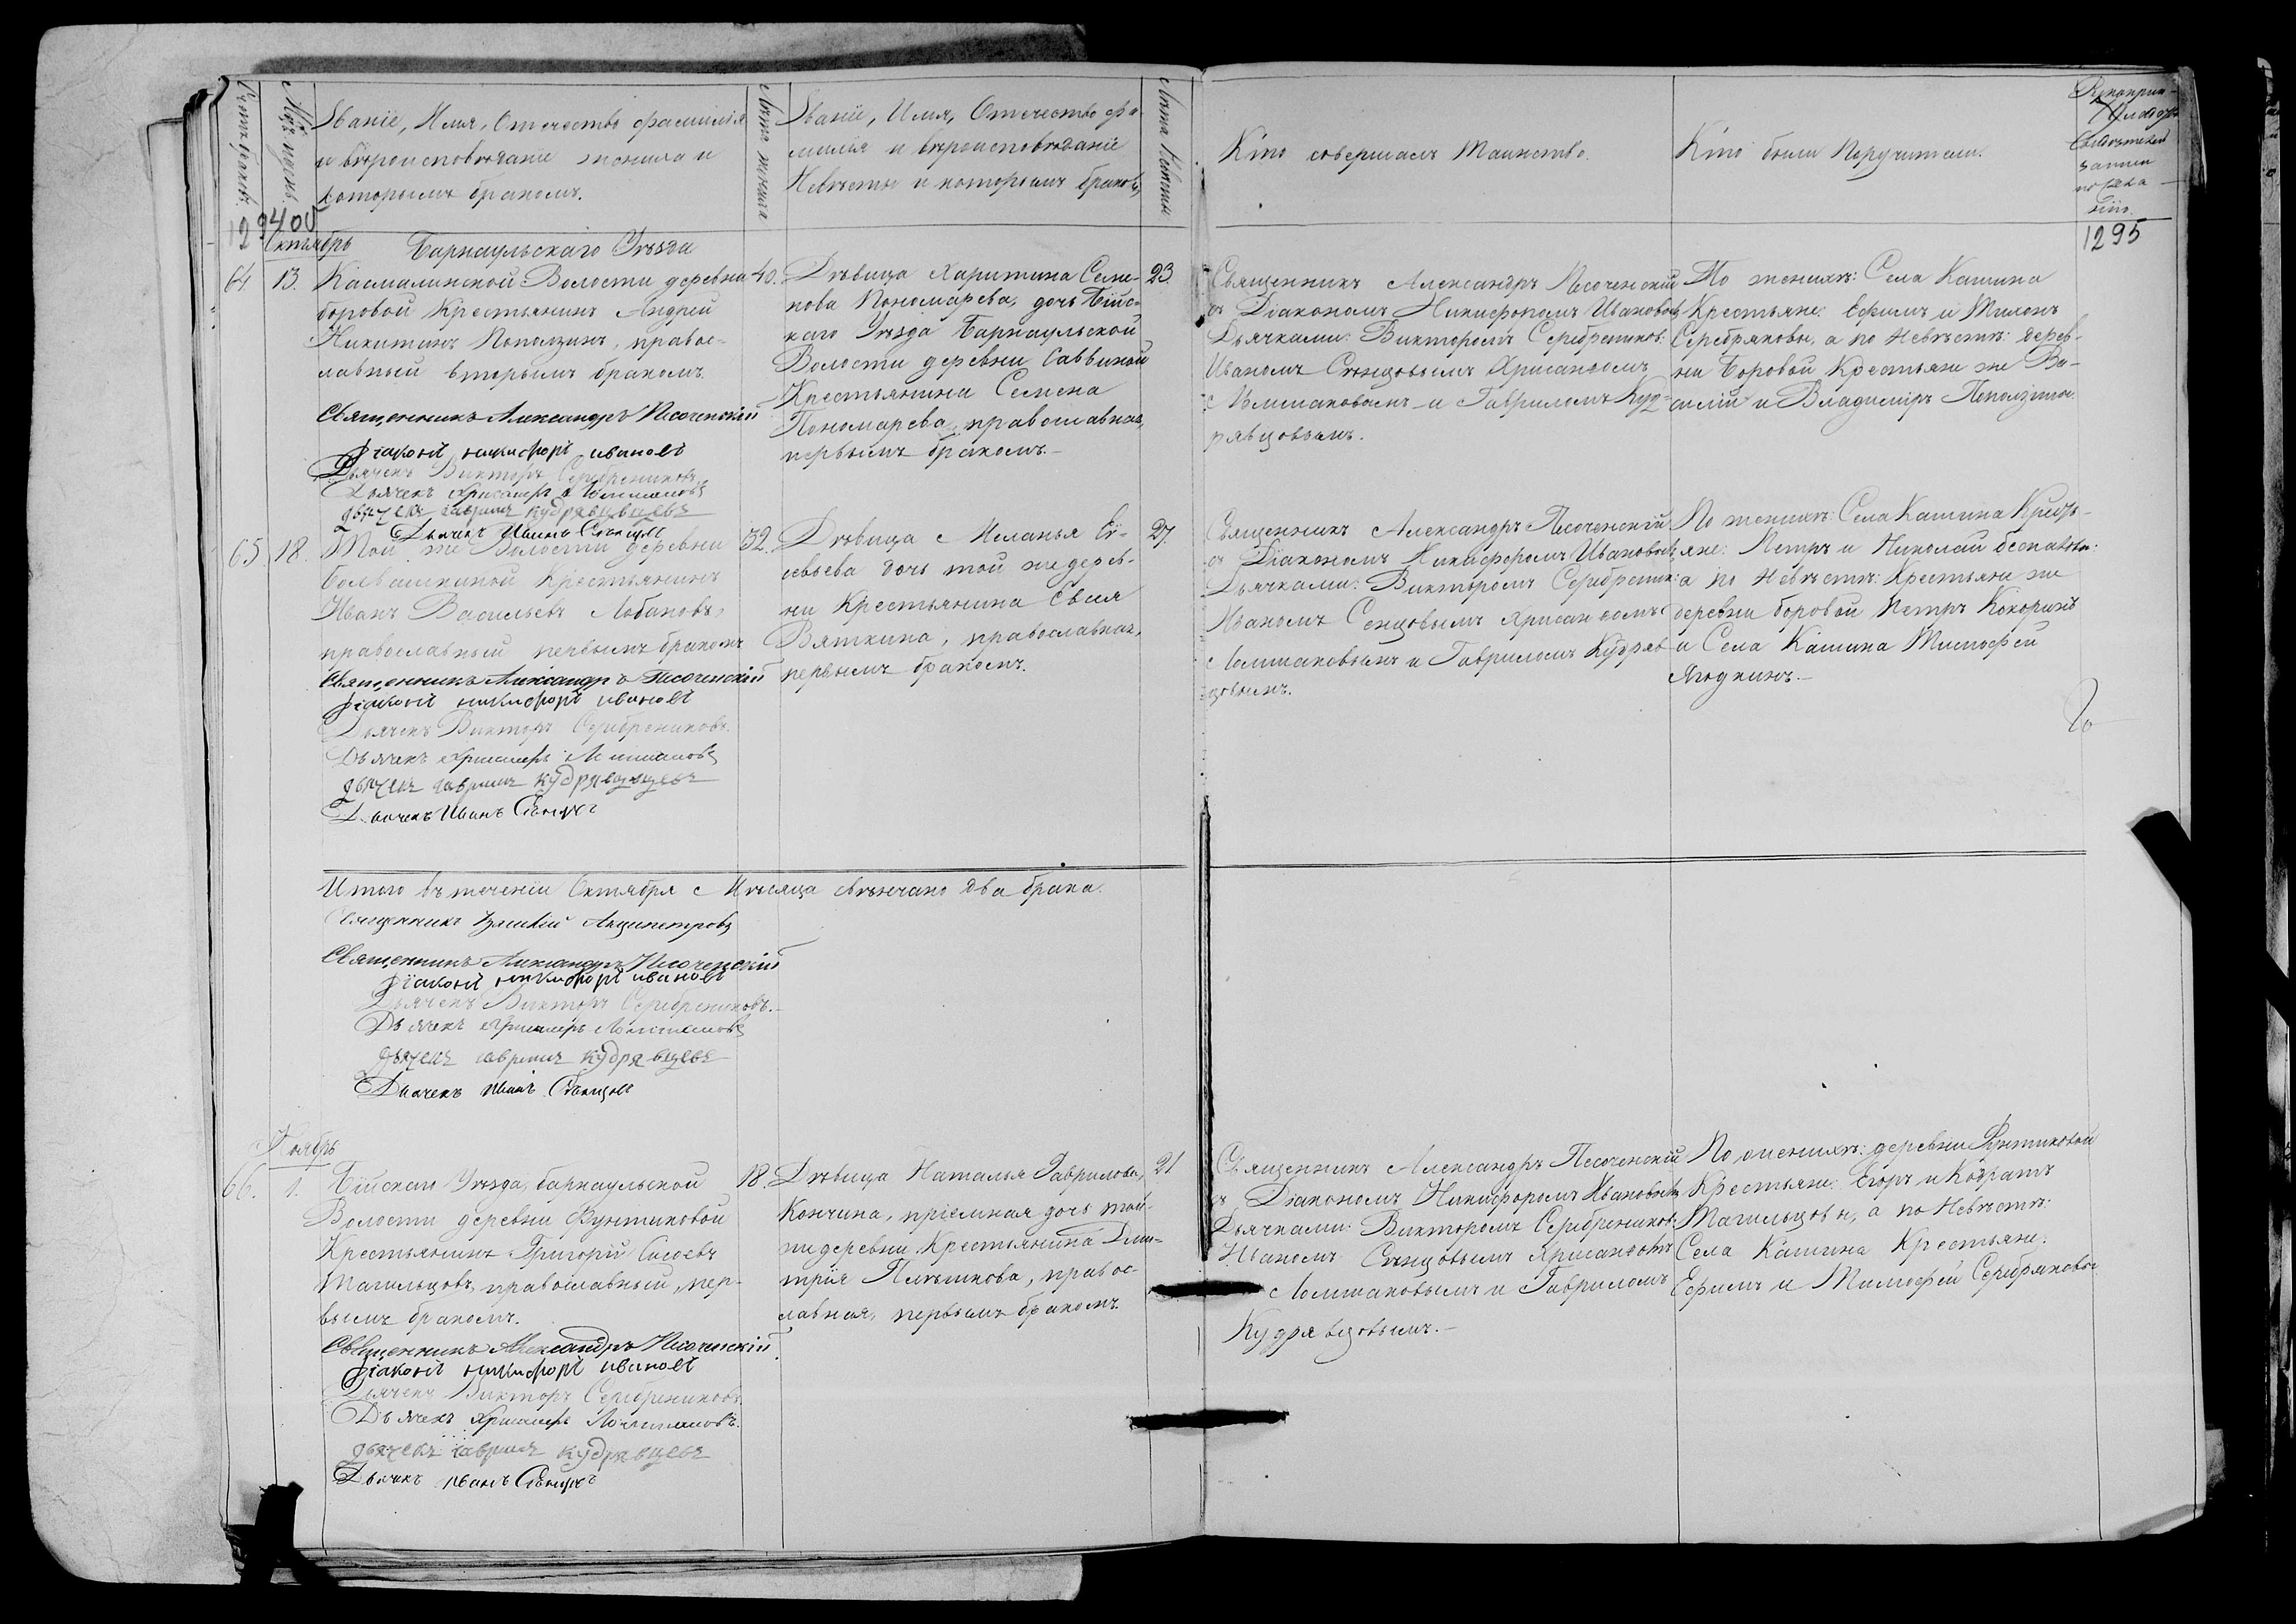 Счетъ браковъ.
Мѣс. и день
Званіе, Имя, Отчество фамилія
и вѣроисповѣданіе жениха и
которымъ бракомъ.
Лѣта жениха
Званіе, Имя, Отчество фа-
милія и вѣроисповѣданіе
Невѣсты и которымъ бракомъ
Лѣта Невѣсты
Кто совершалъ Таинство.
Кто были Поручители.
1295
Октябрь
Барнаульскаго Уѣзда
64.
13.
Касмалинской Волости деревни
боровой Крестьянинъ Андрей
Никитинъ Поползинъ, правос-
лавный вторымъ бракомъ.
Священникъ Александръ Песоченскій
Діаконъ Никифоръ Ивановъ
Дьячекъ Викторъ Серебрениковъ
Дьячекъ Хрисанфъ Ломшаковъ
Дьячекъ Гавриилъ Кудрявцевъ
Дьячекъ Иванъ Сѣнцовъ
40.
Дѣвица Харитина Семе-
нова Пономарева, дочь Бійс-
каго Уѣзда Барнаульской
Волости деревни Саввиной
Крестьянина Семена
Пономарева, православная,
первымъ бракомъ.-
23.
Священникъ Александръ Песоченскій
съ Діакономъ Никифоромъ Ивановымъ
Дьячками: Викторомъ Серебреников:
Иваномъ Сѣнцовымъ Хрисанфомъ
Ломшаковымъ и Гавриломъ Куд-
рявцовымъ.
По женихѣ: Села Кашина
Крестьяне: Ефимъ и Милонъ
Серебряковы, а по Невѣстѣ: дерев-
ни Боровой Крестьяне же Ва-
силій и Владиміръ Поползины.
65.
18.
Той же Волости деревни
болвашкиной Крестьянинъ
Иванъ Васильевъ Лобановъ,
православный первымъ бракомъ
Священникъ Александръ Песоченскій
Діаконъ Никифоръ Ивановъ
Дьячекъ Викторъ Серебрениковъ.
Дьячекъ Хрисанфъ Ломшаковъ
Дьячекъ Гавриилъ Кудрявцевъ
Дьячекъ Иванъ Сѣнцовъ
32.
Дѣвица Меланья Ев-
севьева дочь той же дерев-
ни Крестьянина Евсея
Вяткина, православная,
первымъ бракомъ.
27.
Священникъ Александръ Песоченскій
съ Діакономъ Никифоромъ Ивановымъ
Дьячками: Викторомъ Серебреник:
Иваномъ Сенцовымъ Хрисанфомъ
Ломшаковымъ и Гавриломъ Кудряв-
цовымъ.
По женихѣ: Села Кашина Крест-
яне: Петръ и Николай
а по Невѣстѣ: Крестьяне же
деревни боровой Петръ Кокоринъ
и Села Кашина Тимофей
Ягодкинъ.-
Итого въ теченіи Октября Мѣсяца свѣнчано два брака.
Священникъ
Священникъ Александръ Песоченскій
Діаконъ Никифоръ Ивановъ
Дьячекъ Викторъ Серебрениковъ.-
Дьячекъ Хрисанфъ Ломшаковъ
Дьячекъ Гавриилъ Кудрявцевъ
Дьячекъ Иванъ Сѣнцовъ
Ноябрь
66.
1.
Бійскаго Уѣзда, барнаульской
Волости деревни Фунтиковой
Крестьянинъ Григорій Сысоевъ
Тагильцовъ, православный, пер-
вымъ бракомъ.
Священникъ Александръ Песоченскій
Діаконъ Никифоръ Ивановъ
Дьячекъ Викторъ Серебрениковъ.
Дьячекъ Хрисанфъ Ломшаковъ.
Дьячекъ Гавриилъ Кудрявцевъ
Дьячекъ Иванъ Сѣнцовъ
18.
Дѣвица Наталья Гаврилова,
Кончина, пріемная дочь той-
же деревни Крестьянина Дми-
трія Плѣшкова, правос-
лавная, первымъ бракомъ.
21
Священникъ Александръ Песоченскій
съ Діакономъ Никифоромъ Ивановымъ
Дьячками: Викторомъ Серебреников:
Иваномъ Сѣнцовымъ Хрисанфомъ
Ломшаковымъ и Гавриломъ
Кудрявцовымъ.-
По женихѣ: деревни Фунтиковой
Крестьяне: Егоръ и Кодратъ
Тагильцовы, а по Невѣстѣ:
Села Кашина Крестьяне:
Ефимъ и Тимофей Серебряковы